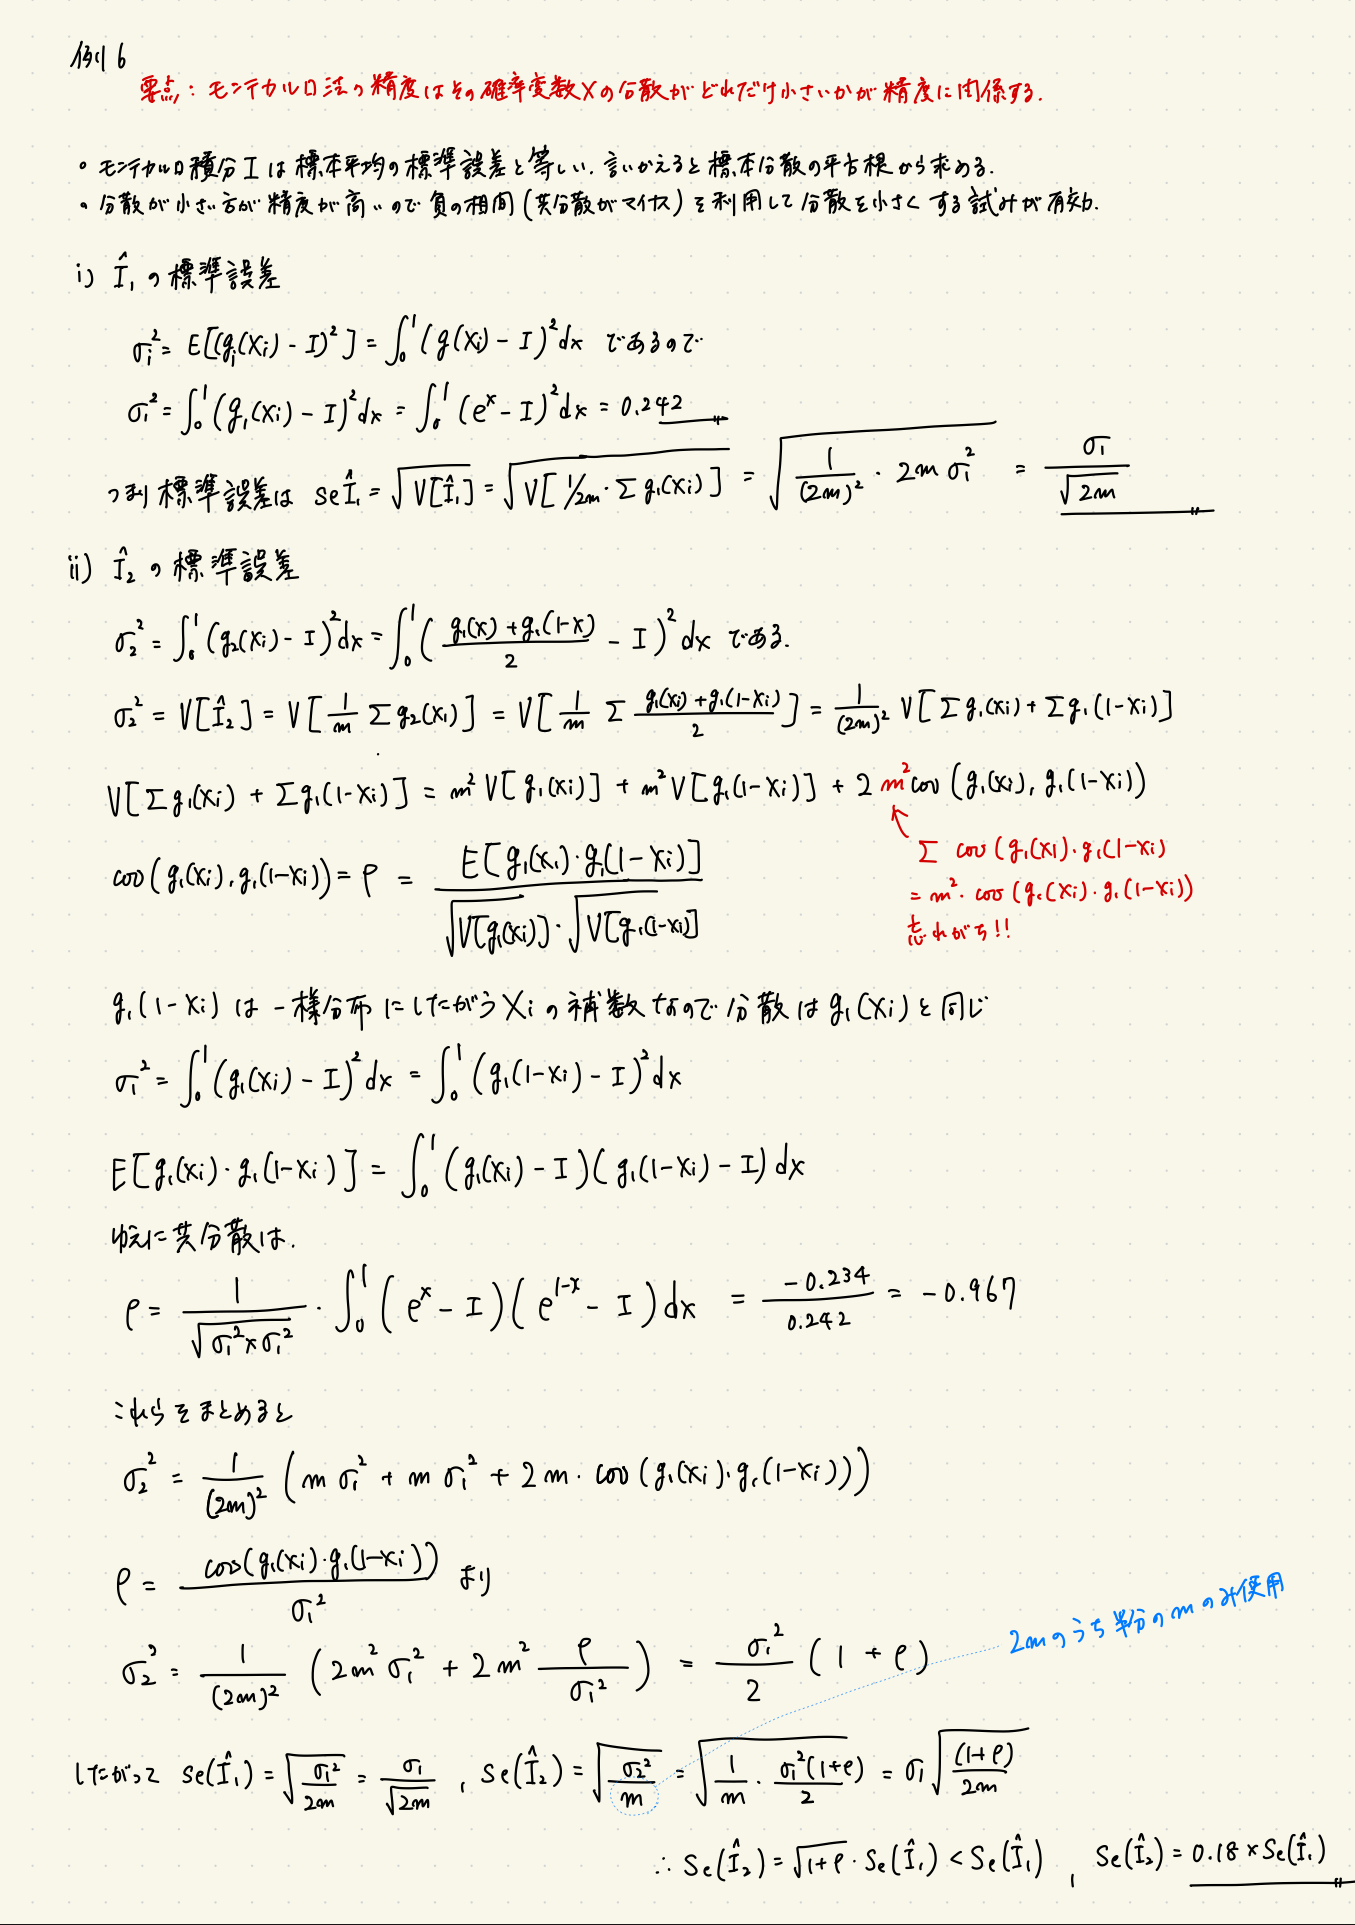 例 6
要点: モンテカルロ法の精度はその確率変数Xの分散がどれだけ小さいかが精度に関係する.
○ モンテカルロ積分 I は標本平均の標準誤差と等しい. 言いかえると標本分散の平方根から求める.
○ 分散が小さい方が精度が高いので負の相関(共分散がマイナス)を利用して分散を小さくする試みが有効.
i) Î₁ の標準誤差
σᵢ² = E[(gᵢ(Xᵢ) - I)²] = ∫₀¹ (g(Xᵢ) - I)² dx であるので
σ₁² = ∫₀¹ (g₁(Xᵢ) - I)² dx = ∫₀¹ (eˣ - I)² dx = 0.242
つまり標準誤差は se Î₁ = √V[Î₁] = √V[1/2m · Σ g₁(Xᵢ)] = √(1/(2m)² · 2m σ₁²) = σ₁/√2m
ii) Î₂ の標準誤差
σ₂² = ∫₀¹ (g₂(Xᵢ) - I)² dx = ∫₀¹ ((g₁(X) + g₁(1-X))/2 - I)² dx である.
σ₂² = V[Î₂] = V[1/m Σ g₂(Xᵢ)] = V[1/m Σ (g₁(Xᵢ) + g₁(1-Xᵢ))/2] = 1/(2m)² V[Σ g₁(Xᵢ) + Σ g₁(1-Xᵢ)]
V[Σ g₁(Xᵢ) + Σ g₁(1-Xᵢ)] = m² V[g₁(Xᵢ)] + m² V[g₁(1-Xᵢ)] + 2 m² cov(g₁(Xᵢ), g₁(1-Xᵢ))
Σ cov(g₁(X1)·g₁(1-Xᵢ)
= m²· cov(g₁(Xᵢ)·g₁(1-Xᵢ))
忘れがち!!
cov(g₁(Xᵢ), g₁(1-Xᵢ)) = ρ = E[g₁(Xᵢ)·g₁(1-Xᵢ)] / (√V[g₁(Xᵢ)] · √V[g₁(1-Xᵢ)])
g₁(1-Xᵢ) は一様分布にしたがう Xᵢ の補数なので分散は g₁(Xᵢ) と同じ
σ₁² = ∫₀¹ (g₁(Xᵢ) - I)² dx = ∫₀¹ (g₁(1-Xᵢ) - I)² dx
E[g₁(Xᵢ)·g₁(1-Xᵢ)] = ∫₀¹ (g₁(Xᵢ) - I)(g₁(1-Xᵢ) - I) dx
ゆえに共分散は.
ρ = 1/√(σ₁²×σ₁²) · ∫₀¹ (eˣ - I)(e¹⁻ˣ - I) dx = -0.234/0.242 = -0.967
これらをまとめると
σ₂² = 1/(2m)² (m σ₁² + m σ₁² + 2m · cov(g₁(Xᵢ)·g₁(1-Xᵢ)))
ρ = cov(g₁(Xᵢ)·g₁(1-Xᵢ))/σ₁² より
2mのうち半分のmのみ使用
σ₂² = 1/(2m)² (2m² σ₁² + 2m² ρ/σ₁²) = σ₁²/2 (1 + ρ)
したがって se(Î₁) = √(σ₁²/2m) = σ₁/√2m , se(Î₂) = √(σ₂²/m) = √(1/m · σ₁²(1+ρ)/2) = σ₁ √((1+ρ)/2m)
∴ Se(Î₂) = √1+ρ · Se(Î₁) < Se(Î₁) , Se(Î₂) = 0.18 × Se(Î₁)